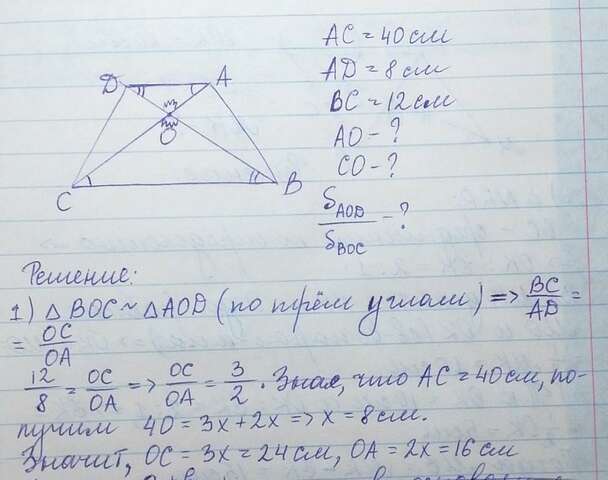 D A
O
C B
AC = 40 см
AD = 8 см
BC = 12 см
AO - ?
CO - ?
S_AOD / S_BOC - ?
Решение:
1) △ BOC ~ △ AOD (по трём углам) => BC/AD =
= OC/OA
12/8 = OC/OA => OC/OA = 3/2. Зная, что AC = 40 см, по-
лучим 40 = 3x + 2x => x = 8 см.
Значит, OC = 3x = 24 см, OA = 2x = 16 см